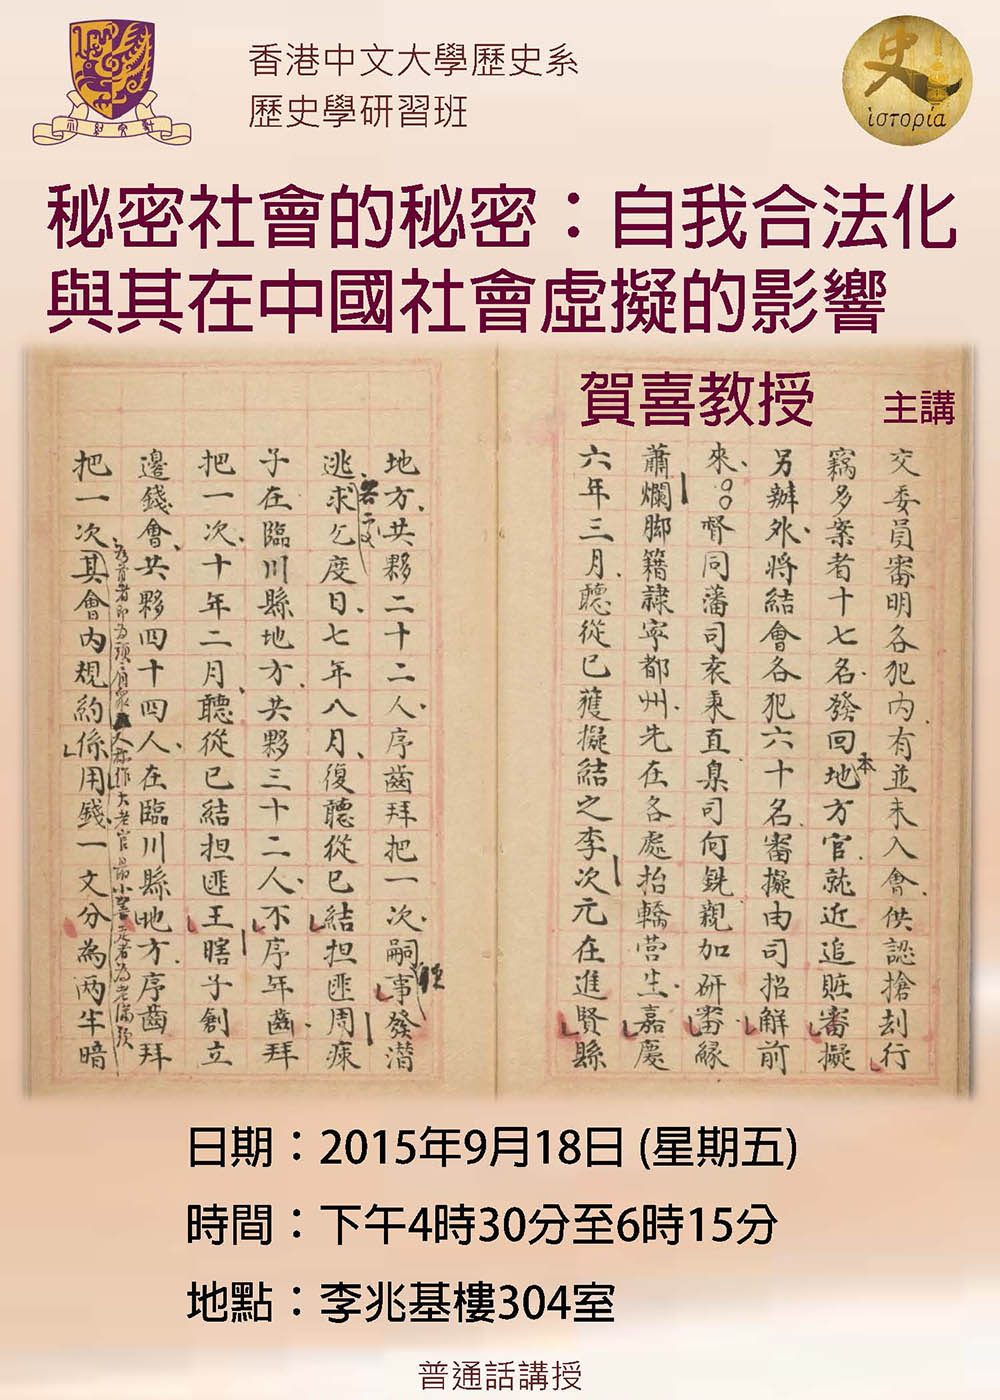 香港中文大學歷史系
歷史學研習班
史
ἱστορία
秘密社會的秘密：自我合法化
與其在中國社會虛擬的影響
賀喜教授 主講
交委員審明各犯內有並未入會供認搶刦行
竊多案者十七名發回本地方官就近追賍審擬
另辦外將結會各犯六十名審擬由司招解前
來督同藩司袁秉直臬司何銑親加研審緣
蕭爛脚籍隸寧都州先在各處抬轎營生嘉慶
六年三月聽從已獲擬結之李次元在進賢縣
地方共夥二十二人序齒拜把一次嗣事發潛
逃求乞度日七年八月復聽從已結担匪周痳
子在臨川縣地方共夥三十二人不序年齒拜
把一次十年二月聽從已結担匪王瞎子創立
邊錢會共夥四十四人在臨川縣地方序齒拜
把一次其會內規約係用錢一文分為两半暗
日期：2015年9月18日 (星期五)
時間：下午4時30分至6時15分
地點：李兆基樓304室
普通話講授